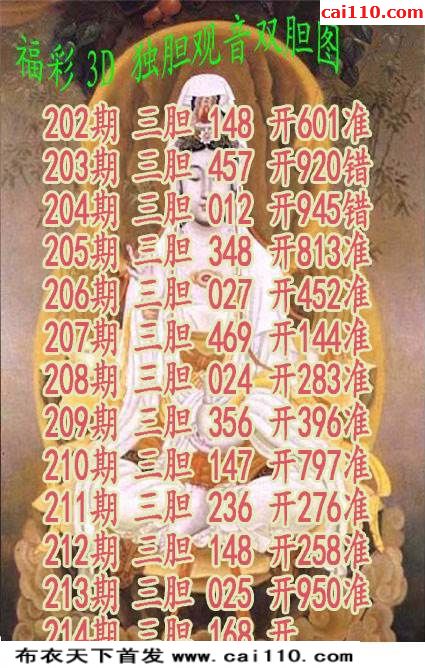 cai110.com
福彩 3D 独胆观音双胆图
202期 三胆 148 开601准
203期 三胆 457 开920错
204期 三胆 012 开945错
205期 三胆 348 开813准
206期 三胆 027 开452准
207期 三胆 469 开144准
208期 三胆 024 开283准
209期 三胆 356 开396准
210期 三胆 147 开797准
211期 三胆 236 开276准
212期 三胆 148 开258准
213期 三胆 025 开950准
214期 三胆 168 开
布衣天下首发 www.cai110.com